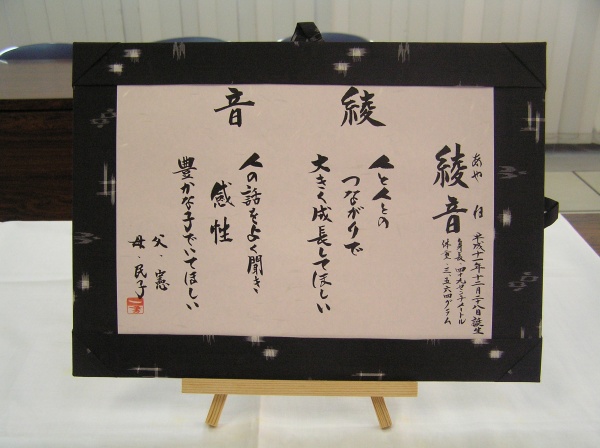 綾音
あや ね
平成十一年十二月二十八日誕生
身長・四十九センチメートル
体重・三、五六四グラム
綾
人と人との
つながりで
大きく成長してほしい
音
人の話をよく聞き
感性
豊かな子でいてほしい
父・憲
母・民子